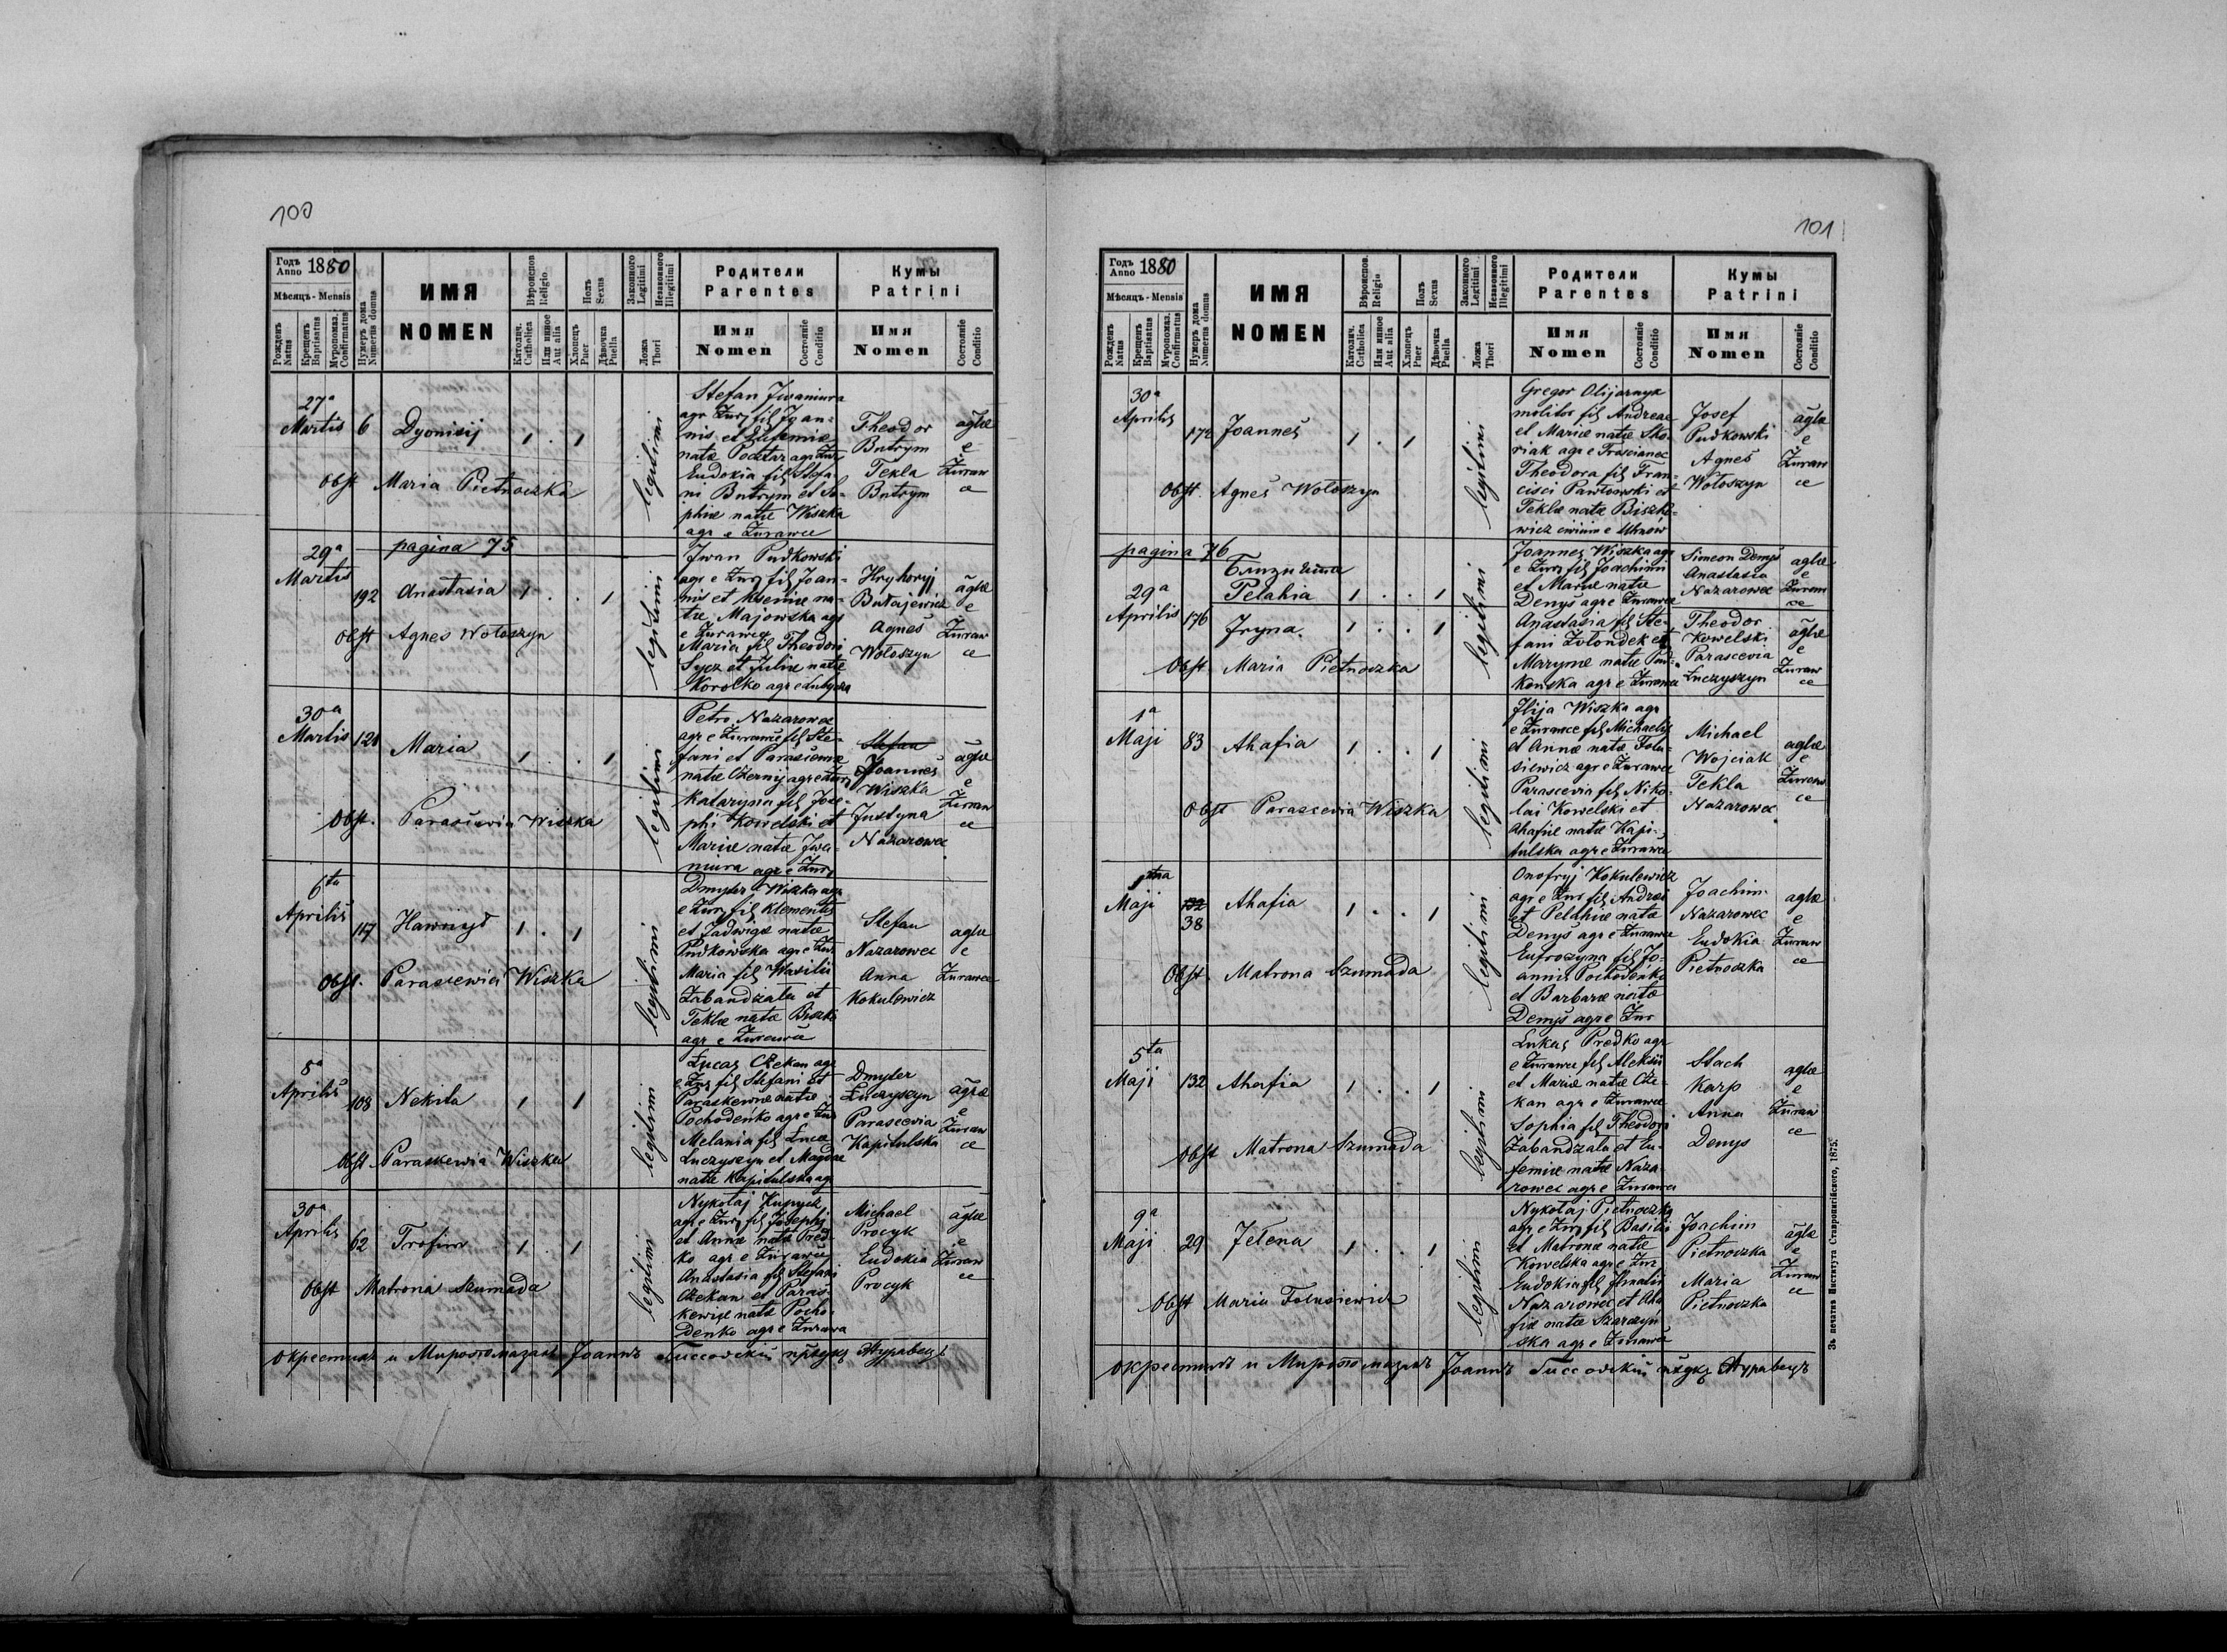 100
Годъ
Anno 1880
Мѣсяцъ - Mensis
Рожденъ
Natus
Крещенъ
Baptisatus
Мѵропомаз.
Confirmatus
Нумеръ дома
Numerus domus
ИМЯ
NOMEN
Вѣроисповѣд.
Religio
Католич.
Catholica
Или иное
Aut alia
Полъ
Sexus
Хлопецъ
Puer
Дѣвочка
Puella
Законного
Legitimi
Незаконного
Illegitimi
Ложа
Thori
Родители
Parentes
Имя
Nomen
Состояніе
Conditio
Кумы
Patrini
Имя
Nomen
Состояніе
Conditio
27a
Martis 6 Dyonisij 1 . 1
Obst Maria Pietnoczka
legitimi
Stefan Iwaniura
agr Żur fil Joan=
nis et Eufemiæ
natæ Pocztar agr Żur
Eudokia fil Stefa
ni Butrym et So-
phiæ natæ Wiszka
agr e Żurawce
Theodor
Butrym
Tekla
Butrym
aglæ
e
Żuraw
ce
pagina 75
29a
Martis 192 Anastasia 1 . . 1
Obst Agnes Wołoszyn
legitimi
Iwan Pudkowski
agr e Żur fil Joan-
nis et Kseniæ na-
tæ Majowska agr
e Żurawce
Maria fil Theodori
Sycz et Juliæ natæ
Korolko agr e Lubycza
Hryhoryj
Bułajewicz
Agnes
Wołoszyn
aglæ
e
Żuraw
ce
30a
Martis 121 Maria 1 . . 1
Obst. Parascewia Wiszka
legitimi
Petro Nazarowec
agr e Żurawce fil Ste-
fani et Parascewiæ
natæ Czernij agr e Żur
Kataryna fil Jose-
phi Kowelski et
Mariæ natæ Iwa-
niura agr e Żur
Stefan
Joannes
Wiszka
Justyna
Nazarowec
aglæ
e
Żuraw
ce
6ta
Aprilis 117 Hawrył 1 . 1
Obst. Parascewia Wiszka
legitimi
Dmyter Wiszka agr
e Żur fil Klementis
et Jadwigæ natæ
Pudkowska agr e Żur
Maria fil Wasilii
Zabandżała et
Teklæ natæ Biszko
agr e Żurawce
Stefan
Nazarowec
Anna
Kokulewicz
aglæ
e
Żurawce
8a
Aprilis 108 Nekita 1 1
Obst. Paraskewia Wiszka
legitimi
Lucas Czekan agr
e Żur fil Stefani et
Paraskewiæ natæ
Pochodenko agr e Żur
Melania fil Lucæ
Łuczyszyn et Magdæ
natæ Kapitulska agr
Dmyter
Łuczyszyn
Parascevia
Kapitulska
aglæ
e
Żuraw
ce
30a
Aprilis 62 Trofim 1 . 1
Obst Matrona Szumada
legitimi
Nykołaj Kupycz
agr e Żur fil Josephi
et Annæ natæ Pred
ko agr e Żurawce
Anastasia fil Stefani
Czekan et Paras-
kewiæ natæ Pocho-
denko agr e Żurawce
Michael
Procyk
Eudokia
Procyk
aglæ
e
Żuraw
ce
окрестилъ и Миропомазалъ Іоаннъ Żуравецъ
101
Годъ
Anno 1880
Мѣсяцъ - Mensis
Рожденъ
Natus
Крещенъ
Baptisatus
Мѵропомаз.
Confirmatus
Нумеръ дома
Numerus domus
ИМЯ
NOMEN
Вѣроисповѣд.
Religio
Католич.
Catholica
Или иное
Aut alia
Полъ
Sexus
Хлопецъ
Puer
Дѣвочка
Puella
Законного
Legitimi
Незаконного
Illegitimi
Ложа
Thori
Родители
Parentes
Имя
Nomen
Состояніе
Conditio
Кумы
Patrini
Имя
Nomen
Состояніе
Conditio
30a
Aprilis 172 Joannes 1 . 1
Obst. Agnes Wołoszyn
legitimi
Gregor Olijarnyk
molitor fil Andreae
et Mariæ natæ Sko-
riak agr e Troscianec
Theodora fil Fran-
cisci Pawłowski et
Teklæ natæ Biszke-
wicz civium e Uhnów
Josef
Pudkowski
Agnes
Wołoszyn
aglæ
e
Żuraw
ce
pagina 76
Близнята
29a Pelahia 1 . . 1
Aprilis 176 Iryna 1 . . 1
Obst. Maria Pietnoczka
legitimi
Joannes Wiszka agr
e Żur fil Joachimi
et Mariæ natæ
Denys agr e Żurawce
Anastasia fil Ste-
fani Zołondek et
Marynæ natæ Pud-
kowska agr e Żurawce
Simeon Denys
Anastasia
Nazarowec
Theodor
Kowelski
Parascevia
Łuczyszyn
aglæ
e
Żuraw
ce
aglæ
e
Żuraw
ce
1a
Maji 83 Ahafia 1 . . 1
Obst Parascevia Wiszka
legitimi
Ilija Wiszka agr
e Żurawce fil Michaelis
et Annæ natæ Folu-
siewicz agr e Żurawce
Parascevia fil Niko-
lai Kowelski et
Ahafiæ natæ Kapi-
tulska agr e Żurawce
Michael
Wojciak
Tekla
Nazarowec
aglæ
e
Żuraw
ce
1ma
Maji 132 Ahafia 1 . . 1
38
Obst. Matrona Szumada
legitimi
Onofryj Kokulewicz
agr e Żur fil Andrei
et Pelahiæ natæ
Denys agr e Żurawce
Eufrozyna fil Jo-
annis Pochodenko
et Barbaræ natæ
Denys agr e Żur
Joachim
Nazarowec
Eudokia
Pietnoczka
aglæ
e
Żuraw
ce
5ta
Maji 132 Ahafia 1 . . 1
Obst Matrona Szumada
legitimi
Lukas Predko agr
e Żurawce fil Aleksii
et Mariæ natæ Cze-
kan agr e Żurawce
Sophia fil Theodori
Zabandżała et Eu-
femiæ natæ Naza-
rowec agr e Żurawce
Stach
Karp
Anna
Denys
aglæ
e
Żuraw
ce
9a
Maji 29 Jelena 1 . . 1
Obst Maria Folusiewicz
legitimi
Nykołaj Pietnoczka
agr e Żur fil Basilii
et Matronæ natæ
Kowelska agr e Żur
Eudokia fil Ihnatii
Nazarowec et Aha
fiæ natæ Szarczyń
ska agr e Żurawce
Joachim
Pietnoczka
Maria
Pietnoczka
aglæ
e
Żuraw
ce
окрестилъ и Миропомазалъ Іоаннъ Żуравецъ
Зъ печатнѣ Института Ставропігійского, 1875.